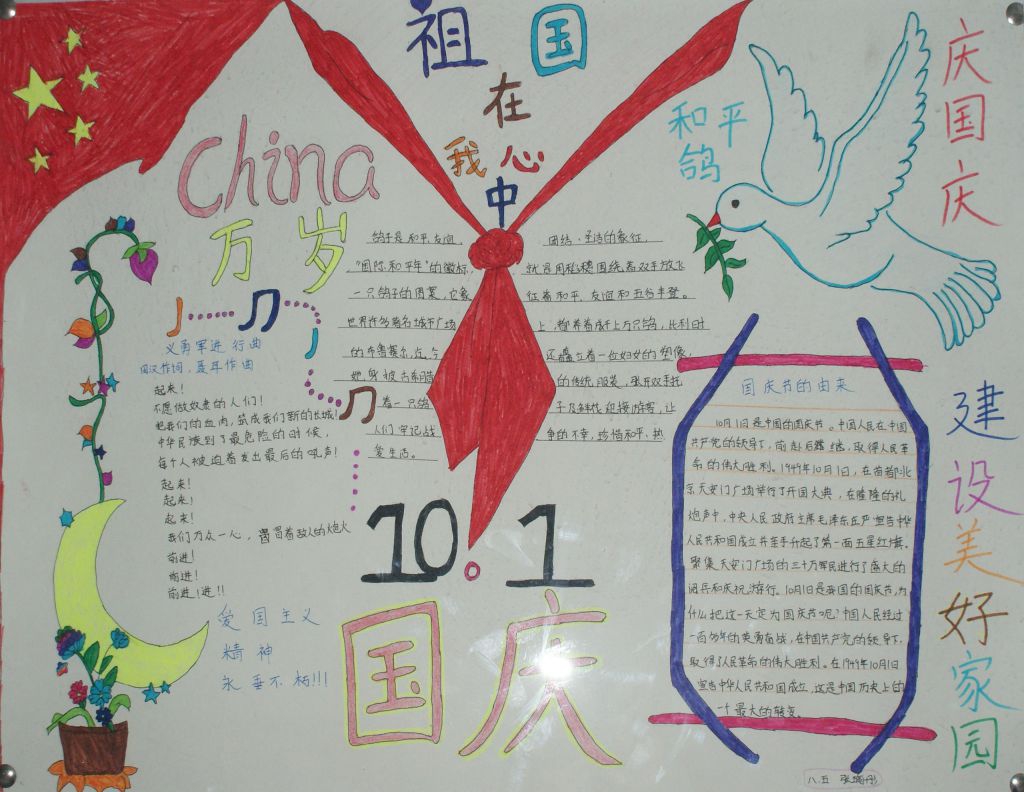 祖国
在
我心
中
China
万岁
和平
鸽
庆国庆
建设美好家园
鸽子是和平、友谊、团结、圣洁的象征，
"国际和平年"的徽标，就是用橄榄围绕着双手放飞
一只鸽子的图案，它象征着和平、友谊和五谷丰登。
世界许多著名城市广场上，都养着成千上万只鸽，比利时
的布鲁塞尔，迄今还矗立着一位妇女的塑像，
她身被古希腊的传统服装，张开双手托
着一只鸽子及鲜花迎接游客，让
人们牢记战争的不幸，珍惜和平、热
爱生活。
义勇军进行曲
田汉作词，聂耳作曲
起来！
不愿做奴隶的人们！
把我们的血肉，筑成我们新的长城！
中华民族到了最危险的时候，
每个人被迫着发出最后的吼声！
起来！
起来！
起来！
我们万众一心，冒着敌人的炮火
前进！
前进！
前进！进！！
爱国主义
精神
永垂不朽！！！
10.1
国庆
国庆节的由来
10月1日是中国的国庆节。中国人民在中国
共产党的领导下，前赴后继，取得人民革
命的伟大胜利。1949年10月1日，在首都北
京天安门广场举行了开国大典，在隆隆的礼
炮声中，中央人民政府主席毛泽东庄严宣告中华
人民共和国成立并亲手升起了第一面五星红旗。
聚集天安门广场的三十万军民进行了盛大的
阅兵和庆祝游行。10月1日是我国的国庆节，为
什么把这一天定为国庆节呢？中国人民经过
一百多年的英勇奋战，在中国共产党的领导下，
取得了人民革命的伟大胜利。在1949年10月1日
宣告中华人民共和国成立，这是中国历史上的
一个最大的转变。
八.五 张